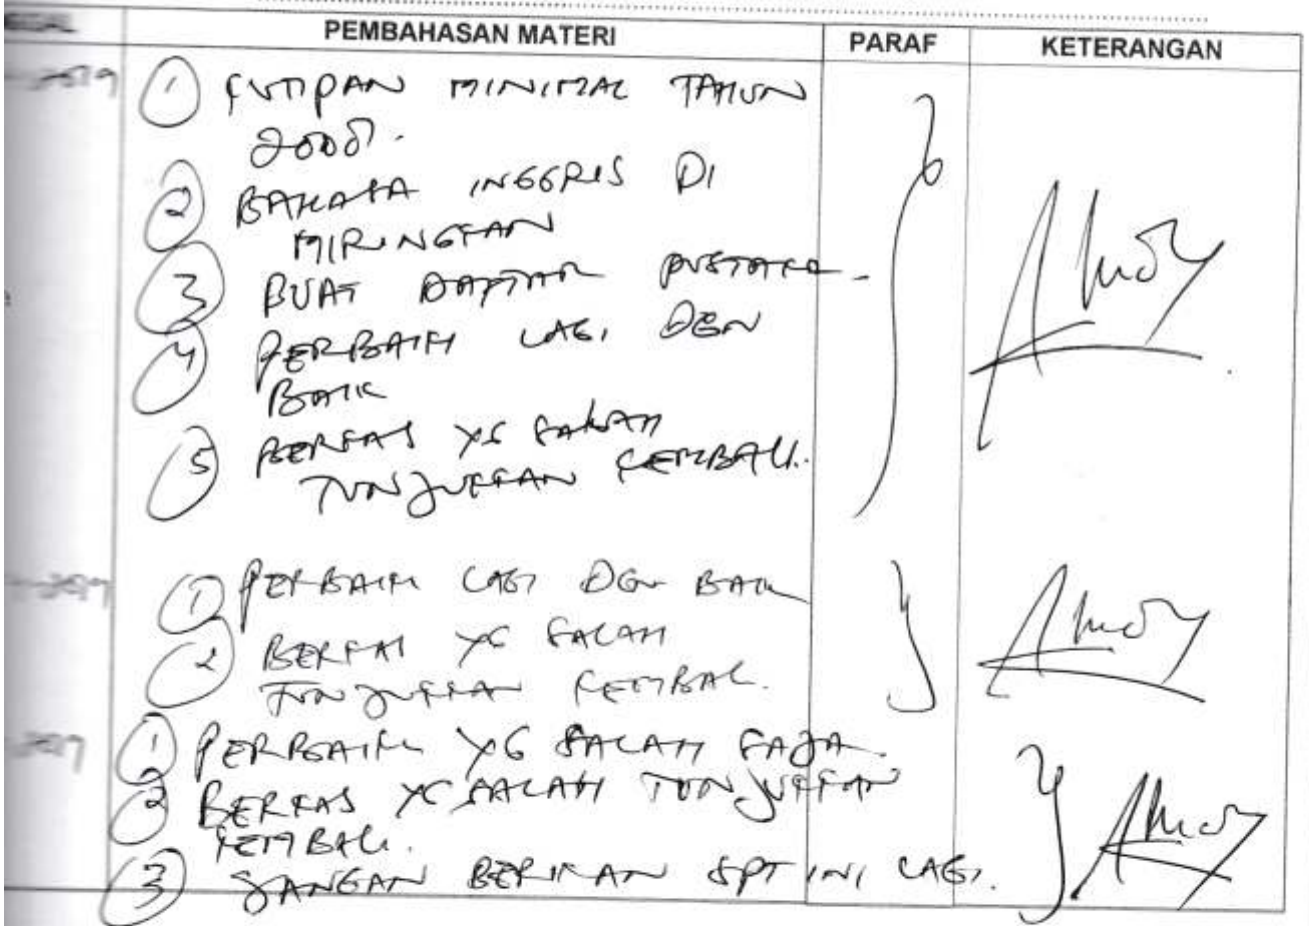 PEMBAHASAN MATERI PARAF KETERANGAN
2019 1 KUTIPAN MINIMAL TAHUN
2008.
2 BAHASA INGGRIS DI
MIRINGKAN
3 BUAT DAFTAR PUSTAKA.
4 PERBAIKI LAGI DGN
BAIK
5 BERKAS YG SALAH
TUNJUKKAN KEMBALI.
2019 1 PERBAIKI LAGI DGN BAIK
2 BERKAS YG SALAH
TUNJUKKAN KEMBALI.
2019 1 PERBAIKI YG SALAH SAJA.
2 BERKAS YG SALAH TUNJUKKAN
KEMBALI.
3 JANGAN BERIKAN SPT INI LAGI.